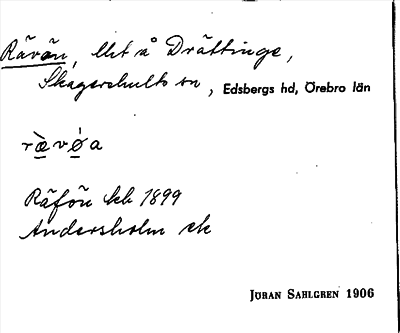 Rävön, llrt å Drättinge,
Skagershults sn, Edsbergs hd, Örebro län
rævøa
Räfön kb 1899
Andersholm ek
JÖRAN SAHLGREN 1906